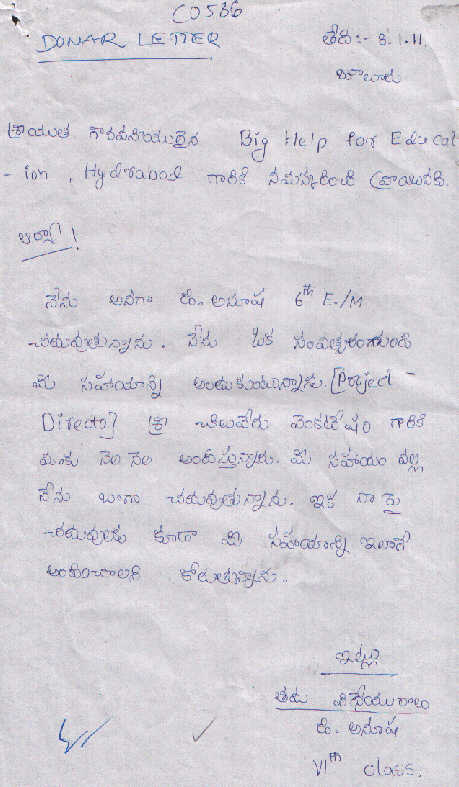 CO536
DONAR LETTER
తేది:- 8.1.11.
శ్రీయుత గౌరవనీయులైన Big Help for Educat
-ion, Hyderabad గారికి నమస్కరించి వ్రాయునది.
నేను అనగా కె. అనూష 6th E/M
చదువుతున్నాను. నేను ఒక సంవత్సరంనుండి
మీ సహాయాన్ని అందుకుంటున్నాను. [Project -
Director] శ్రీ చిలువేరు వెంకటేషం గారికి
మాకు నెల నెల అందిస్తున్నారు. మీ సహాయం వల్ల
నేను బాగా చదువుతున్నాను. ఇక నా పై
చదువులకు కూడా మీ సహాయాన్ని ఇలాగే
అందించాలని కోరుతున్నాను..
ఇట్లు
తమ విధేయురాలు
కె. అనూష
VIth class.